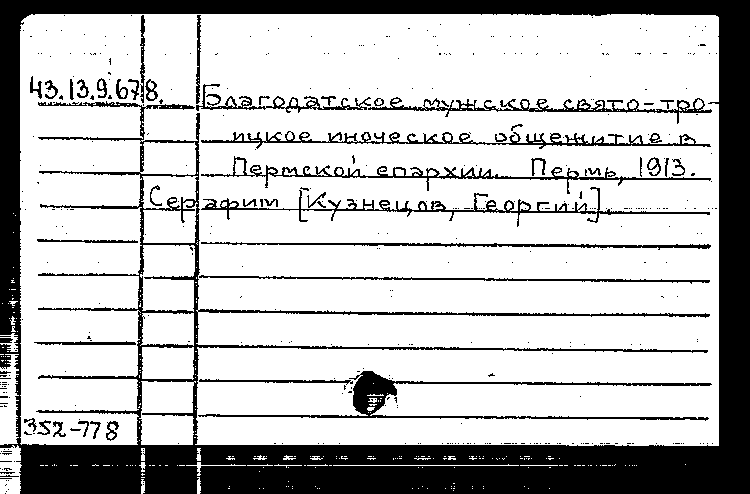 43.13.9.678. Благодатское мужское свято-тро-
ицкое иноческое общежитие в
Пермской епархии. Пермь, 1913.
Серафим [Кузнецов, Георгий].
352-778